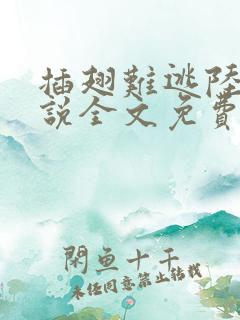 插翅難逃陸
說全文免費
閑魚十千
未经同意禁止转载